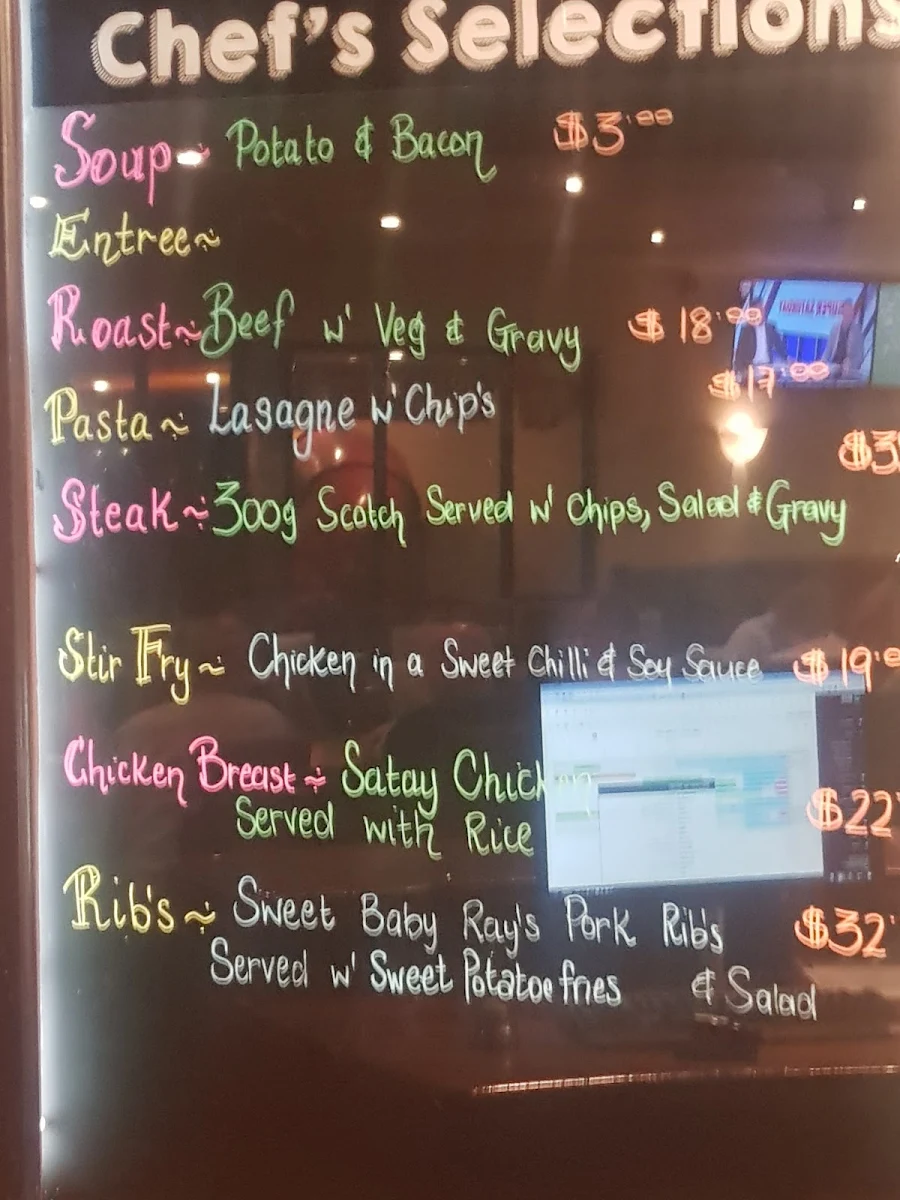 Chef's Selections
Soup~ Potato & Bacon $3.00
Entree~
Roast~ Beef w' Veg & Gravy $18.00
Pasta~ Lasagne w' Chip's $17.00
Steak~ 300g Scotch Served w' Chips, Salad & Gravy $3
Stir Fry~ Chicken in a Sweet Chilli & Soy Sauce $19.0
Chicken Breast~ Satay Chicken $22
Served with Rice
Rib's~ Sweet Baby Ray's Pork Rib's $32
Served w' Sweet Potatoe fries & Salad